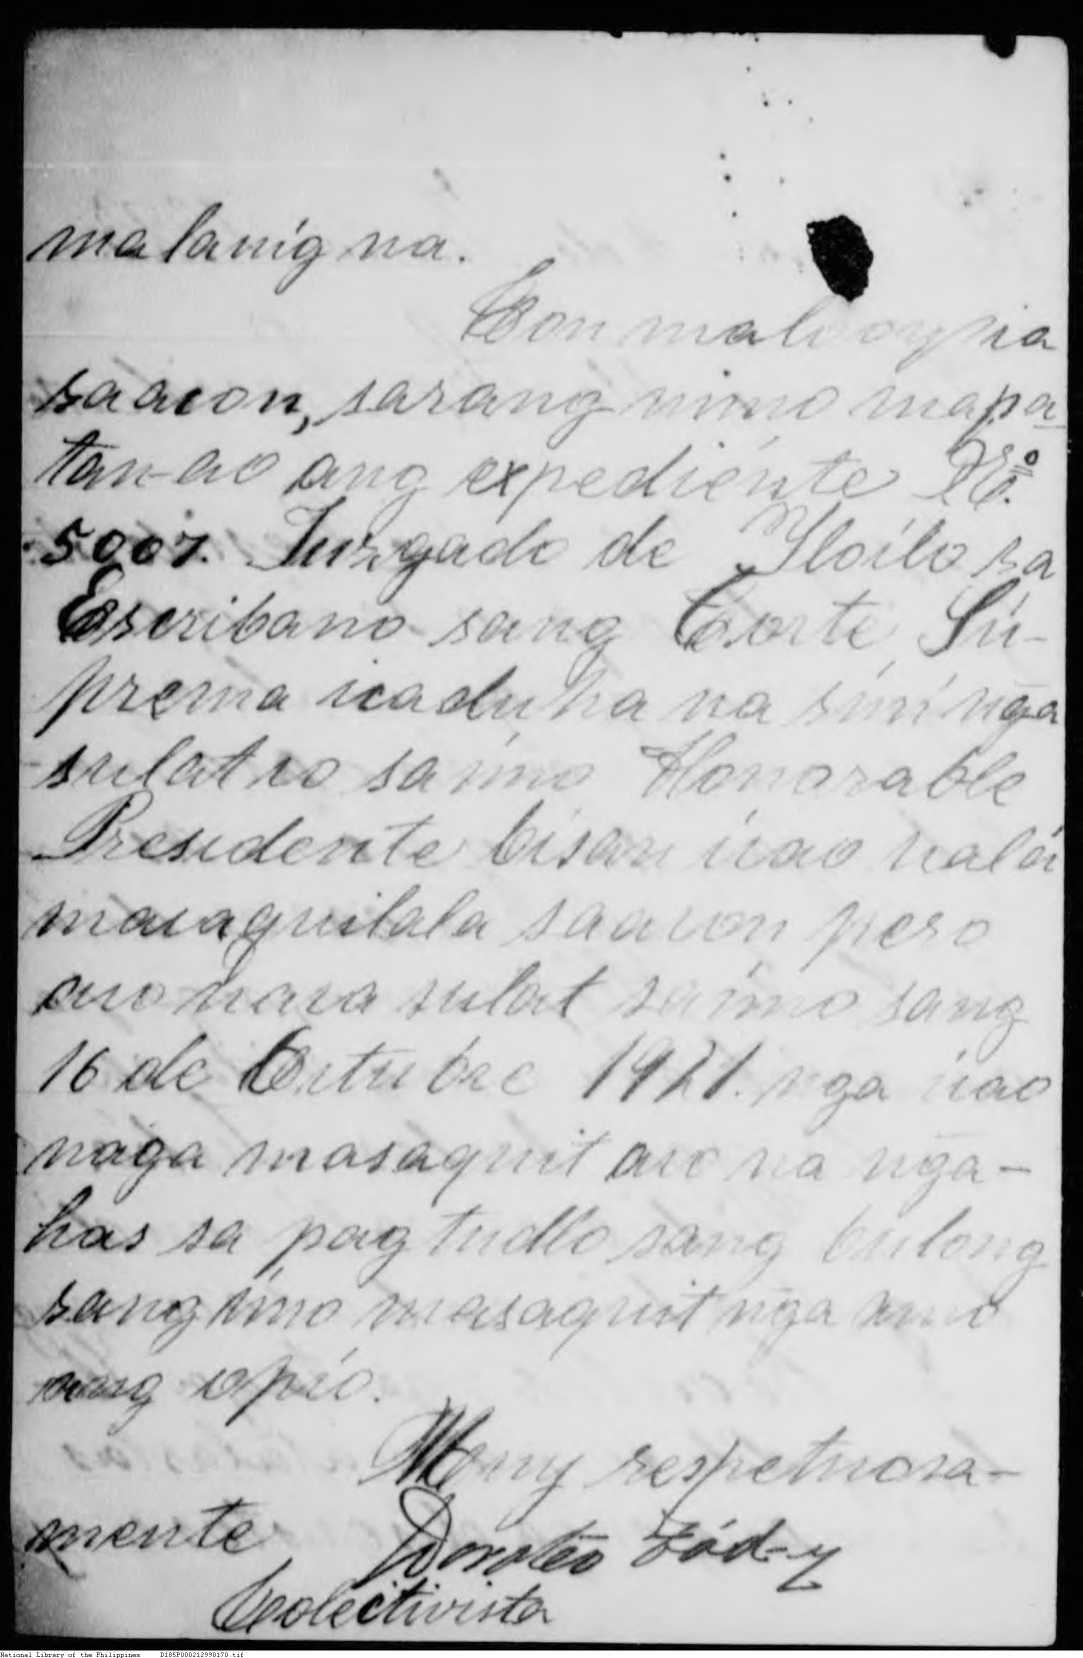 malanig na.
Con maluoy ka
saacon, sarang nimo mapa
tan-ao ang expediente No.
5007. Juzgado de Iloilo sa
Escribano sang Corte Su-
prema icaduha na sini nga
sulat co saimo Honorable
Presidente bisan icao
macaquilala saacon pero
aco naca sulat saimo sang
16 de Octubre 1921. nga icao
naga masaquit aco na nga-
has sa pag tudlo sang bulong
sang imo masaquit nga amo
ang opio.
Muy respetuosa-
mente Doroteo
Colectivista
National Library of the Philippines D185P000212998170.tif